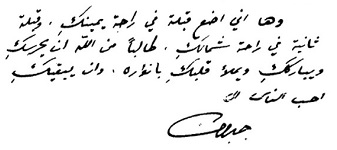 وها اني اضع قبلة في راحة يمينكِ. وقبلة
ثانية في راحة شمالكِ. طالباً من الله ان يحرسكِ
ويبارككِ ويملأ قلبكِ بانواره. وان يبقيكِ
احب الناس اليّ
جبران